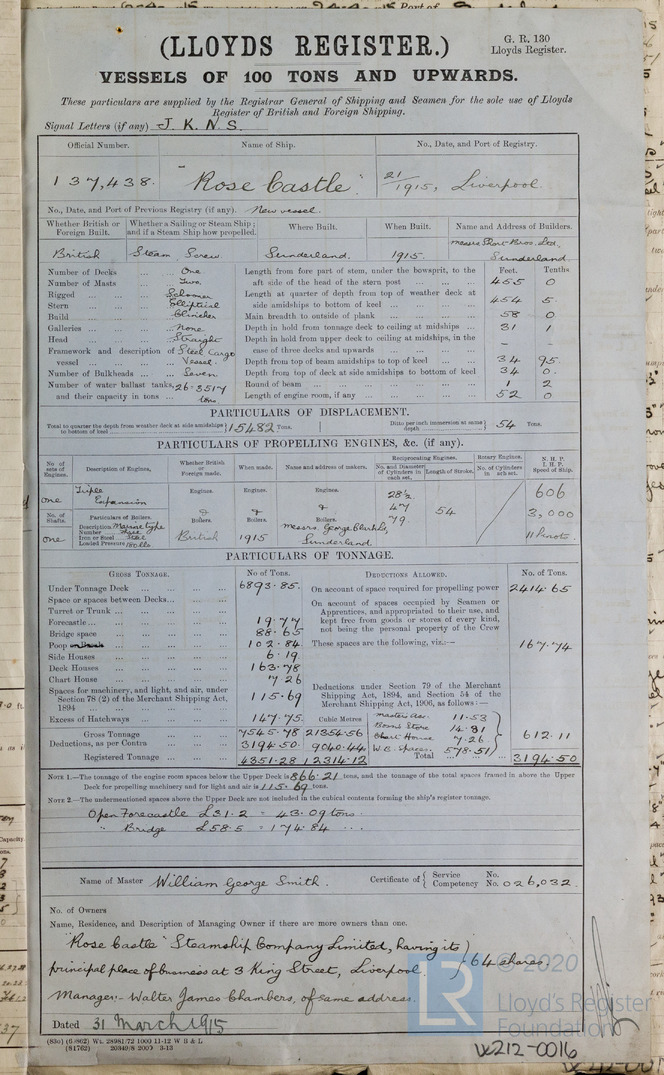 (LLOYDS REGISTER.)
G. R. 130
Lloyds Register.
VESSELS OF 100 TONS AND UPWARDS.
These particulars are supplied by the Registrar General of Shipping and Seamen for the sole use of Lloyds
Register of British and Foreign Shipping.
Signal Letters (if any) J. K. N. S.
Official Number. Name of Ship. No., Date, and Port of Registry.
137,438. "Rose Castle" 21/1915, Liverpool.
No., Date, and Port of Previous Registry (if any). New vessel.
Whether British or Foreign Built. Whether a Sailing or Steam Ship; and if a Steam Ship how propelled. Where Built. When Built. Name and Address of Builders.
British Steam Screw. Sunderland. 1915. Messrs Short Bros. Ltd. Sunderland
Feet. Tenths
Number of Decks ... ... One
Number of Masts ... ... Two.
Rigged ... ... ... Schooner
Stern ... ... ... Elliptical
Build ... ... ... Clincher
Galleries ... ... ... None
Head ... ... ... Straight
Framework and description of vessel ... ... Steel Cargo Vessel.
Number of Bulkheads ... ... Seven.
Number of water ballast tanks, and their capacity in tons ... 26. 3517 tons.
Length from fore part of stem, under the bowsprit, to the aft side of the head of the stern post ... ... 455 0
Length at quarter of depth from top of weather deck at side amidships to bottom of keel ... ... 454 5
Main breadth to outside of plank ... ... 58 0
Depth in hold from tonnage deck to ceiling at midships ... 31 1
Depth in hold from upper deck to ceiling at midships, in the case of three decks and upwards ... ... – –
Depth from top of beam amidships to top of keel ... 34 95
Depth from top of deck at side amidships to bottom of keel 34 0.
Round of beam ... ... 1 2
Length of engine room, if any ... ... 52 0
PARTICULARS OF DISPLACEMENT.
Total to quarter the depth from weather deck at side amidships to bottom of keel 15482 Tons. Ditto per inch immersion at same depth 54 Tons.
PARTICULARS OF PROPELLING ENGINES, &c. (if any).
No of sets of Engines. Description of Engines, Whether British or Foreign made. When made. Name and address of makers. Reciprocating Engines. No. and Diameter of Cylinders in each set. Length of Stroke. Rotary Engines. No. of Cylinders in each set. N. H. P. I. H. P. Speed of Ship.
one Triple Expansion Engines. Engines. Engines. 28½ 47 79. 54 606
No. of Shafts. Particulars of Boilers. & Boilers. & Boilers. & Boilers. 3,000
one Description Marine type Number Iron or Steel Steel Loaded Pressure British 1915 Messrs. George Clark Ld. Sunderland. 11 knots.
PARTICULARS OF TONNAGE.
GROSS TONNAGE. No of Tons. DEDUCTIONS ALLOWED. No. of Tons.
Under Tonnage Deck ... ... 6893.85.
Space or spaces between Decks... ...
Turret or Trunk ... ...
Forecastle ... ... 19.77
Bridge space ... ... 88.65
Poop ... ... 102.84
Side Houses ... ... 6.19
Deck Houses ... ... 163.78
Chart House ... ... 7.26
Spaces for machinery, and light, and air, under Section 78 (2) of the Merchant Shipping Act, 1894 ... ... 115.69
Excess of Hatchways ... ... 147.75. Cubic Metres
Gross Tonnage ... 7545.78 21354.56
Deductions, as per Contra ... 3194.50 9040.44
Registered Tonnage ... 4351.28 12314.12
On account of space required for propelling power 2414.65
On account of spaces occupied by Seamen or Apprentices, and appropriated to their use, and kept free from goods or stores of every kind, not being the personal property of the Crew
These spaces are the following, viz.:— 167.74
Deductions under Section 79 of the Merchant Shipping Act, 1894, and Section 54 of the Merchant Shipping Act, 1906, as follows:—
Master's Acc. 11.53
Boatn's Store 14.81
Chart House 7.26
W.B. Spaces. 578.51
612.11
Total ... 3194.50
NOTE 1.—The tonnage of the engine room spaces below the Upper Deck is 866.21 tons, and the tonnage of the total spaces framed in above the Upper
Deck for propelling machinery and for light and air is 115.69 tons.
NOTE 2.—The undermentioned spaces above the Upper Deck are not included in the cubical contents forming the ship's register tonnage.
Open Forecastle £31.2 = 43.09 tons
" Bridge £58.5 = 174.84 "
Name of Master William George Smith. Certificate of { Service No. Competency No. 026,032.
No. of Owners
Name, Residence, and Description of Managing Owner if there are more owners than one.
"Rose Castle" Steamship Company Limited, having its
principal place of business at 3 King Street, Liverpool. } 64 shares
Manager:- Walter James Chambers, of same address.
Dated 31 March 1915
(83o) (6/862) Wt. 28981/72 1000 11-12 W B & L
(81762) 20349/8 2000 3-13
© 2020
LR
Lloyd's Register
Foundation
W212-0016